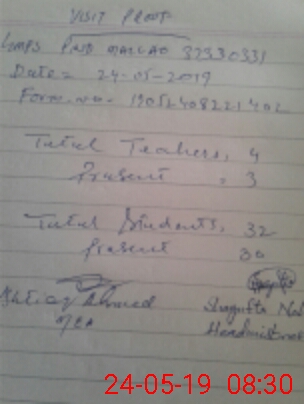 VISIT PROOF
PIND MALCAO 37330331
Date = 24-05-2019
Form no - 19052408221402
Total Teachers, 4
Present . 3
Total Students, 32
Present 30
Ishtiaq Ahmed Shagufta
MEA Headmistress
24-05-19 08:30